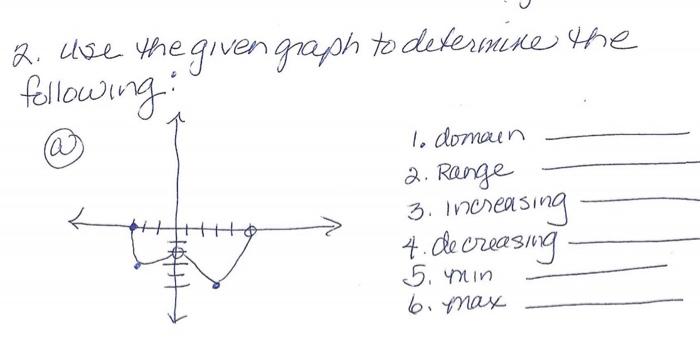 2. Use the given graph to determine the
following:
(a)
1. domain
2. Range
3. Increasing
4. decreasing
5. min
6. max